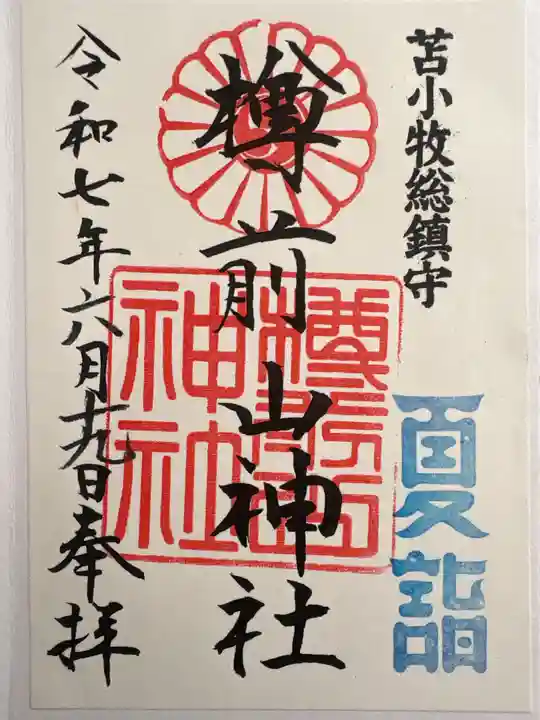 苫小牧総鎮守
夏詣
樽前山神社
樽前山神社
令和七年六月十九日奉拝